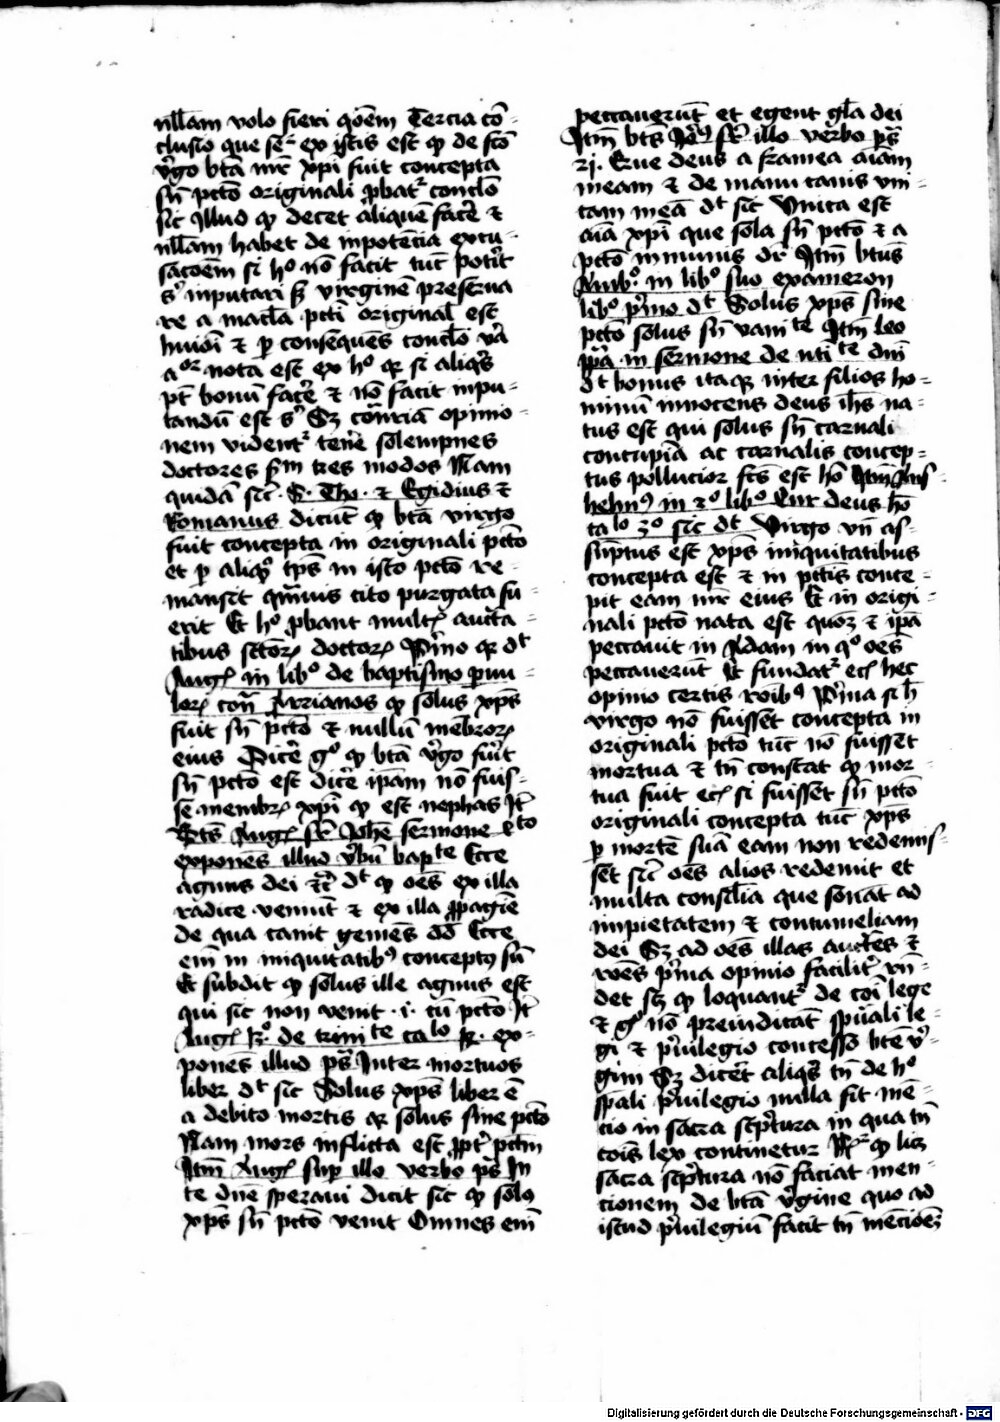 nullam volo fieri q̄oēm Tercia cō-
clusio que seq̄r ex istis est qp de fcō
v̓go btā mr̄ xp̄i fuit concepta
sn̄ pctō originali p̱batr̓ conclō
sic Illud qp decet aliquē facē ⁊
nllam habet de inpotēcia excu-
sacōem si hº nō facit tūc potit
s̓ inputari sꝫ virginē preserua
re a macla pcti original est
huiōi ⁊ p̱ consequēs conclō v̓a
aᵒʳ nota est ex hº qr si aliqs̓
pt̄ bonū facē ⁊ nō facit inpu-
tandū est s̓ Sꝫ cōtriā opinio-
nem videntr̓ tenē solempnes
doctores sᵐ tres modos Nam
quidā sicꝰ .S. Tho. ⁊ Egidius ⁊
Romanus dicūt qp btā virgo
fuit concepta in originali pctō
et p̱ aliqº tp̄s in isto pctō re-
mansit qm̄uis cito purgata fu-
erit Et hº p̱bant multꝭ aucta-
tibus sctōrꝝ doctorꝝ Pⁱmo qr dᵗ
Augꝭ in libº de baptismo p̱uu-
lorꝝ cont̄ Arrianos qp solus xp̄s
fuit sn̄ pctō ⁊ nullū mēbrorꝝ
eius Dicē gº qp btā v̓go fuit
sn̄ pctō est dicē ipam nō fuis-
se membrꝝ xp̄i qp est nephas Itꝭ
Bts̄ Augꝭ sr̄ Johē sermone 4ᵗᵒ
exponēs illud v̓bū bapᵗᵉ Ecce
agnus dei ⁊c̄ dᵗ qp oēs ex illa
radice veniūt ⁊ ex illa p̱pagīe
de qua canit gemēs dd̄ Ecce
em̄ in iniquitatibꝰ conceptꝰ sū
Et subdit qp solus ille agnus est
qui sic non venit .i. cū pctō Itꝭ
ponēs illud ps̄ Inter mortuos
liber dᵗ sic Solus xp̄s liber ē
a debito mortis qr solus sine pctō
Nam mors inflicta est p̱pt̓ pctm̄
Itm̄ Augꝭ sup̱ illo verbo ps̄ In
te dn̄e speraui dicit sic qp solꝰ
xp̄s sn̄ pctō venit Omnes em̄
peccauerūt et egent gl̄a dei
Itm̄ bts̄ sr̄ illo verbo ps̄
Erue deus a framea aīam
meam ⁊ de manu canis vni-
cam meā dᵗ sic Unica est
aīa xp̄i que sola sn̄ pctō ⁊ a
pctō inmunis dr̄ Itm̄ btūs
Ambº in libº suo exameron
libº pⁱmo dᵗ Solus xp̄s sine
pctō solus sn̄ vaniᵗᵉ Itm̄ leo
pp̄a in sermone de utiᵗᵉ dn̄i
dᵗ bonus itaqꝫ inter filios ho-
minū innocens deus ih̄s na-
tus est qui solus sn̄ carnali
concupīa ac carnalis concep-
tus pollucior fcs̄ est hō Itm̄ Ans-
helmꝰ in 2º libº Cur deus hō
caˡᵒ 3º sic dᵗ Virgo vn̄ as-
sūptus est xp̄s iniquitatibus
concepta est ⁊ in pctis conce-
pit eam mr̄ eius Et in origi-
nali pctō nata est quoꝫ ⁊ ipā
peccauit in Adam in qº oēs
peccauerūt Et fundatr̓ ecꝭ hec
opinio certis roībꝰ Pⁱma si h̄
virgo nō fuisset concepta in
originali pctō tūc nō fuisset
mortua ⁊ tn̄ constat qp mor-
tua fuit ecꝭ si fuisset sn̄ pctō
originali concepta tūc xp̄s
p̱ mortē suā eam non redemis-
set sic oēs alios redemit et
multa consilia que sonāt ad
inpietatem ⁊ contumeliam
dei Sꝫ ad oēs illas auctēs ⁊
roēs pⁱma opinio facilit̓ rn̄-
det scꝫ qp loquantr̓ de coi lege
⁊ gº nō preiudicāt spūali le-
gi ⁊ pⁱuilegio concesso btē v̓-
gini Sꝫ dicēt aliqs̓ tn̄ de hº
spali pⁱuilegio nulla fit mē-
cio in sacra scpt̓ura in qua tn̄
cois lex continetur Rr̓ qp licꝫ
sacra scpt̓ura nō faciat men-
cionem de btā v̓gine quo ad
istud pⁱuilegiū facit tn̄ mēcioēꝫ
Digitalisierung gefördert durch die Deutsche Forschungsgemeinschaft - DFG